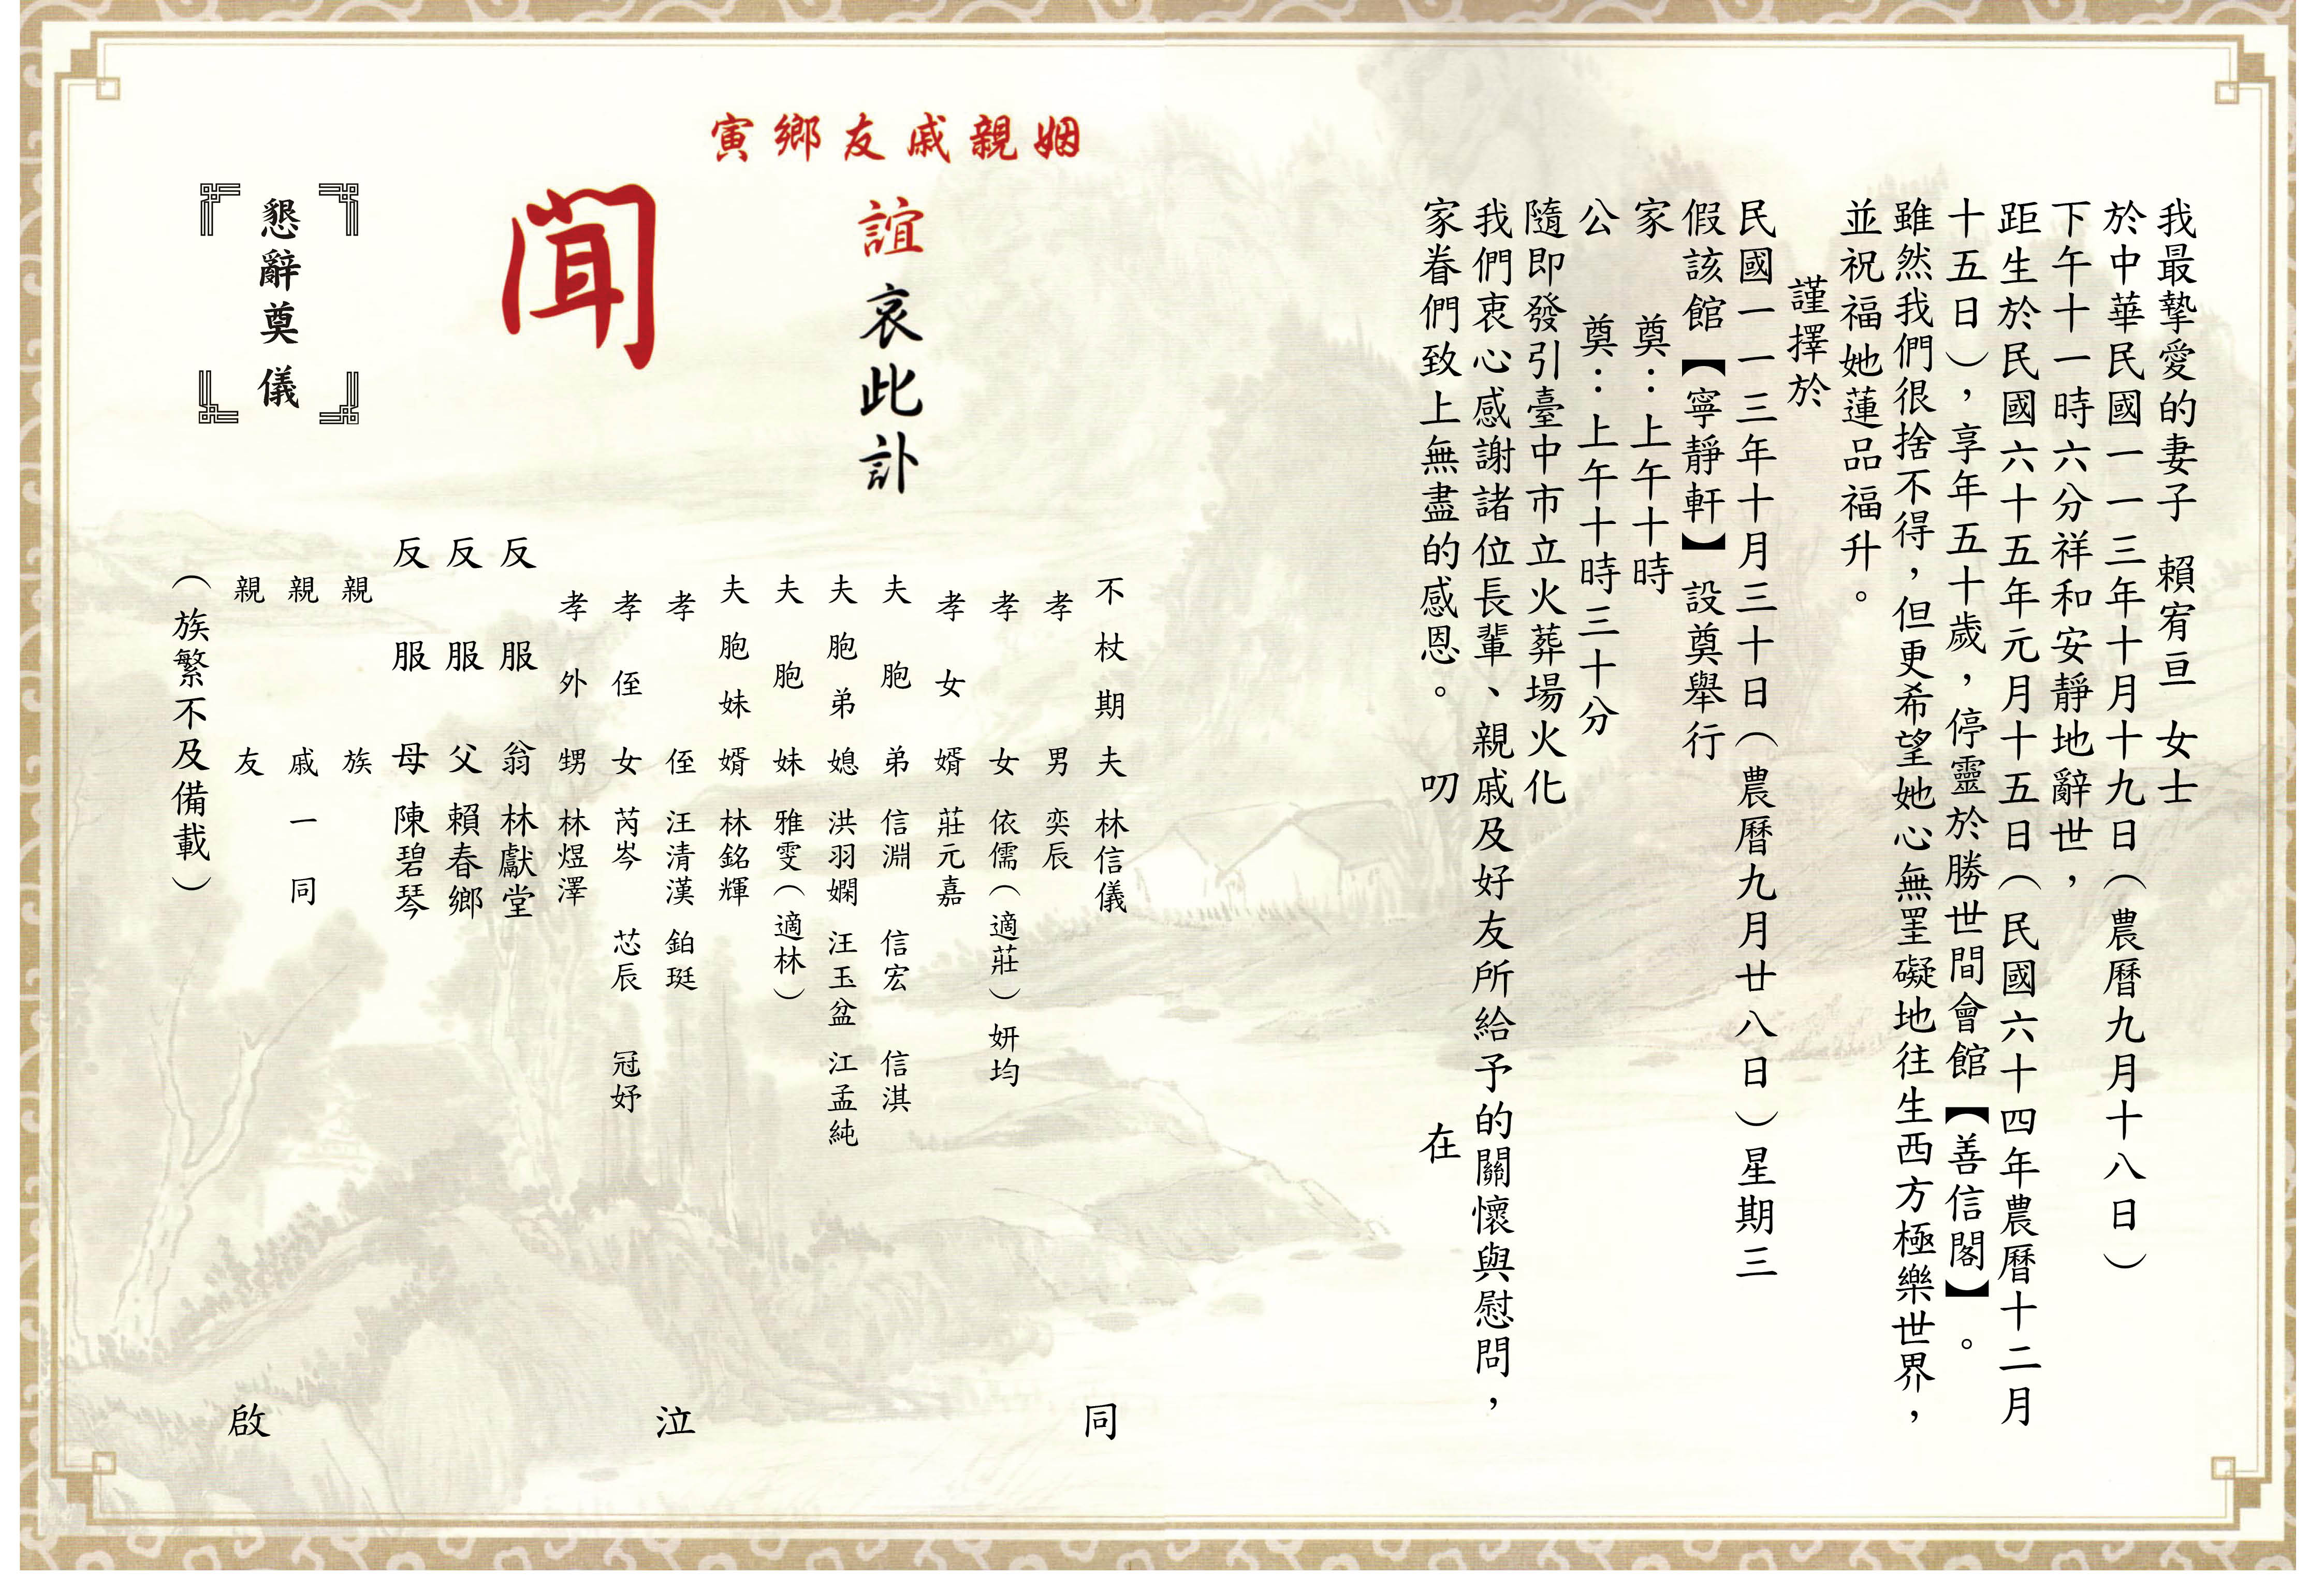 我最摯愛的妻子 賴宥亘 女士
於中華民國一一三年十月十九日（農曆九月十八日）
下午十一時六分祥和安靜地辭世，
距生於民國六十五年元月十五日（民國六十四年農曆十二月
十五日），享年五十歲，停靈於勝世間會館【善信閣】。
雖然我們很捨不得，但更希望她心無罣礙地往生西方極樂世界，
並祝福她蓮品福升。
謹擇於
民國一一三年十月三十日（農曆九月廿八日）星期三
假該館【寧靜軒】設奠舉行
家 奠：上午十時
公 奠：上午十時三十分
隨即發引臺中市立火葬場火化
我們衷心感謝諸位長輩、親戚及好友所給予的關懷與慰問，
家眷們致上無盡的感恩。 叨 在
姻親戚友鄉寅
誼哀此訃
聞
懇辭奠儀
不杖期夫 林信儀
孝男 奕辰
孝女 依儒（適莊） 妍均
孝女婿 莊元嘉
夫胞弟 信淵 信宏 信淇
夫胞弟媳 洪羽嫻 汪玉盆 江孟純
夫胞妹 雅雯（適林）
夫胞妹婿 林銘輝
孝侄 汪清漢 鉑珽
孝侄女 芮岑 芯辰 冠妤
孝外甥 林煜澤
反服翁 林獻堂
反服父 賴春鄉
反服母 陳碧琴
親族
親戚一同
親友
（族繁不及備載）
同 泣 啟